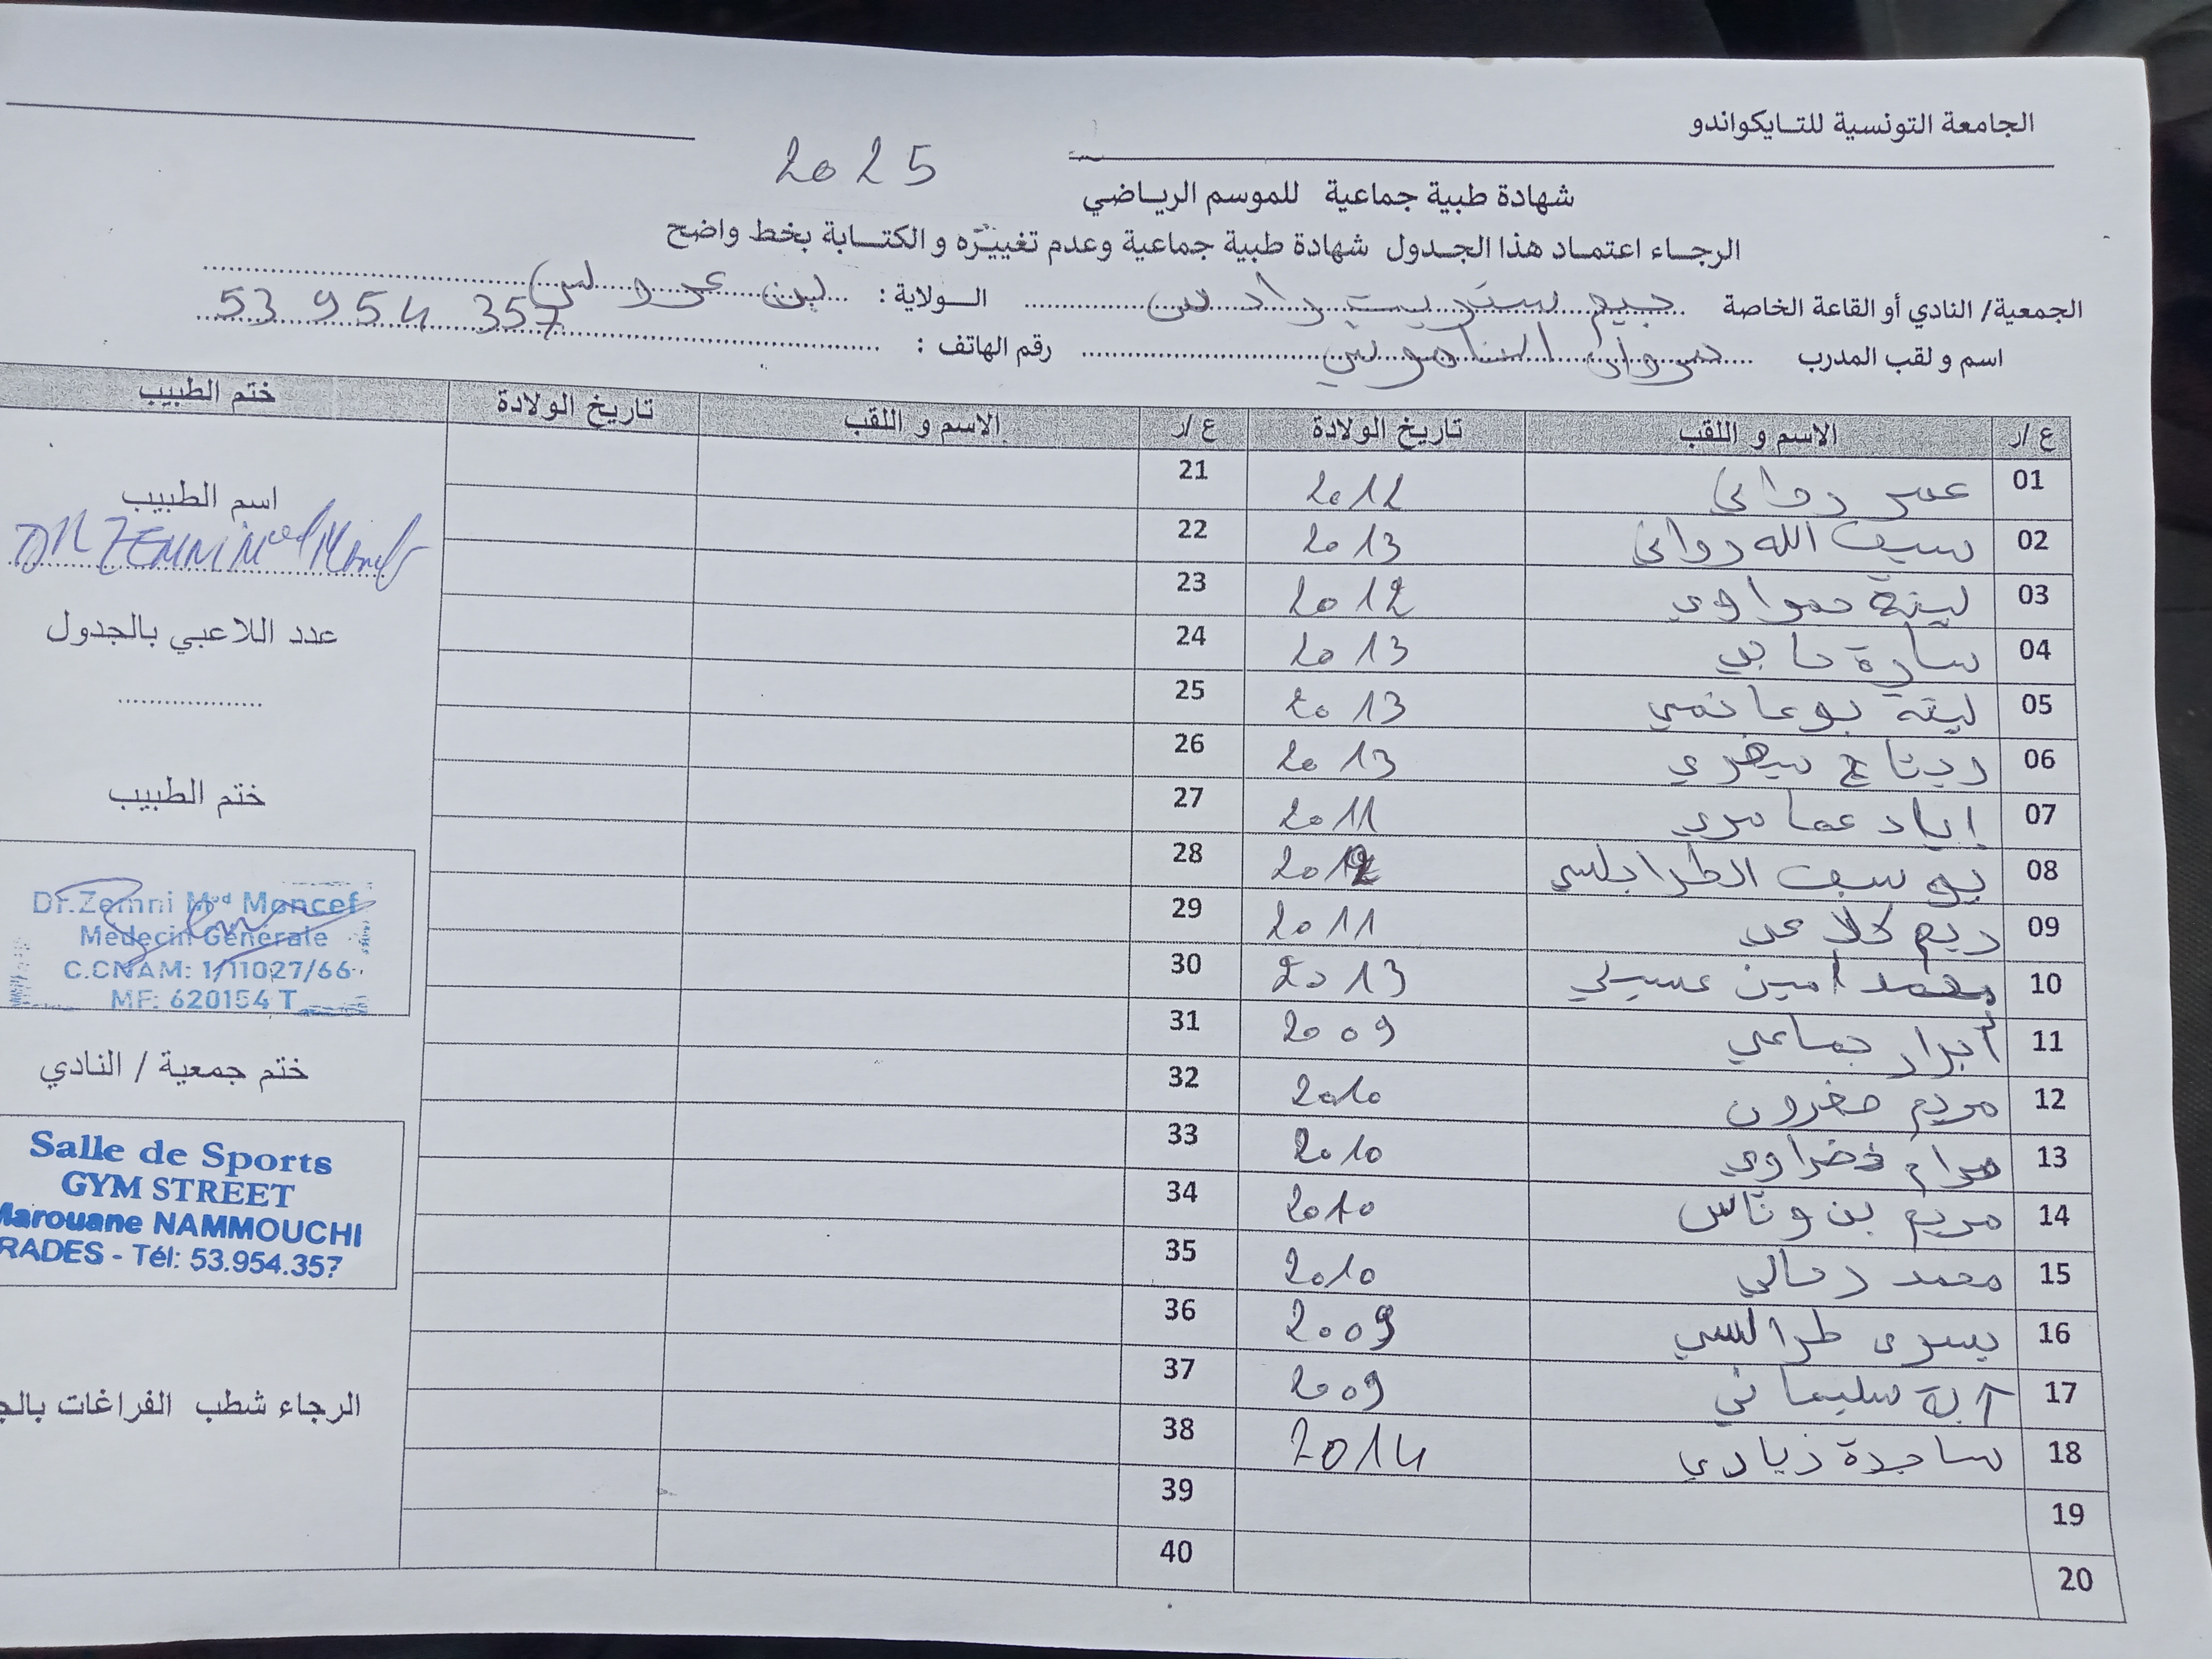 الجامعة التونسية للتايكواندو
شهادة طبية جماعية للموسم الرياضي 2025
الرجاء اعتماد هذا الجدول شهادة طبية جماعية وعدم تغييره و الكتابة بخط واضح
الجمعية/ النادي أو القاعة الخاصة جيم ستريت رادس الولاية : بن عروس
اسم و لقب المدرب مروان النموشي رقم الهاتف : 53 954 357
ع/ر الاسم و اللقب تاريخ الولادة ع/ر الاسم و اللقب تاريخ الولادة ختم الطبيب
01 عمر رواني 2012 21
02 سيف الله رواني 2013 22
03 لينة 2012 23
04 سارة حاجي 2013 24
05 لينة بوغانمي 2013 25
06 ريتاج 2013 26
07 إياد عمامري 2011 27
08 يوسف الطرابلسي 2012 28
09 ريم كلاعي 2011 29
10 محمد امين عسيلي 2013 30
11 أبرار جماعي 2009 31
12 مريم مقرون 2010 32
13 مرام خضراوي 2010 33
14 مريم بن وناس 2010 34
15 محمد رحالي 2010 35
16 يسرى طرابلسي 2009 36
17 آية سليماني 2009 37
18 ساجدة زيادي 2014 38
19 39
20 40
اسم الطبيب
DR ZEMNI Med Moncef
عدد اللاعبي بالجدول
ختم الطبيب
Dr.Zemni Med Moncef
Médecin Générale
C.CNAM: 1/11027/66
MF: 620154 T
ختم جمعية / النادي
Salle de Sports
GYM STREET
Marouane NAMMOUCHI
RADES - Tél: 53.954.357
الرجاء شطب الفراغات